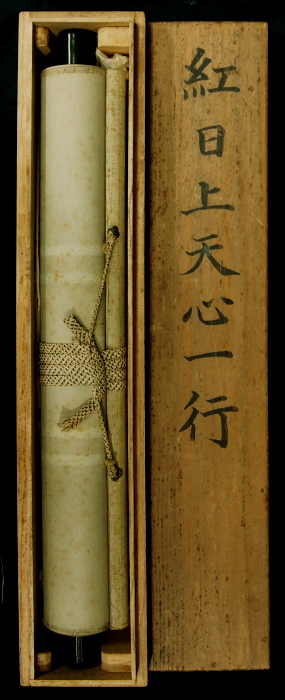 紅日上天心一行